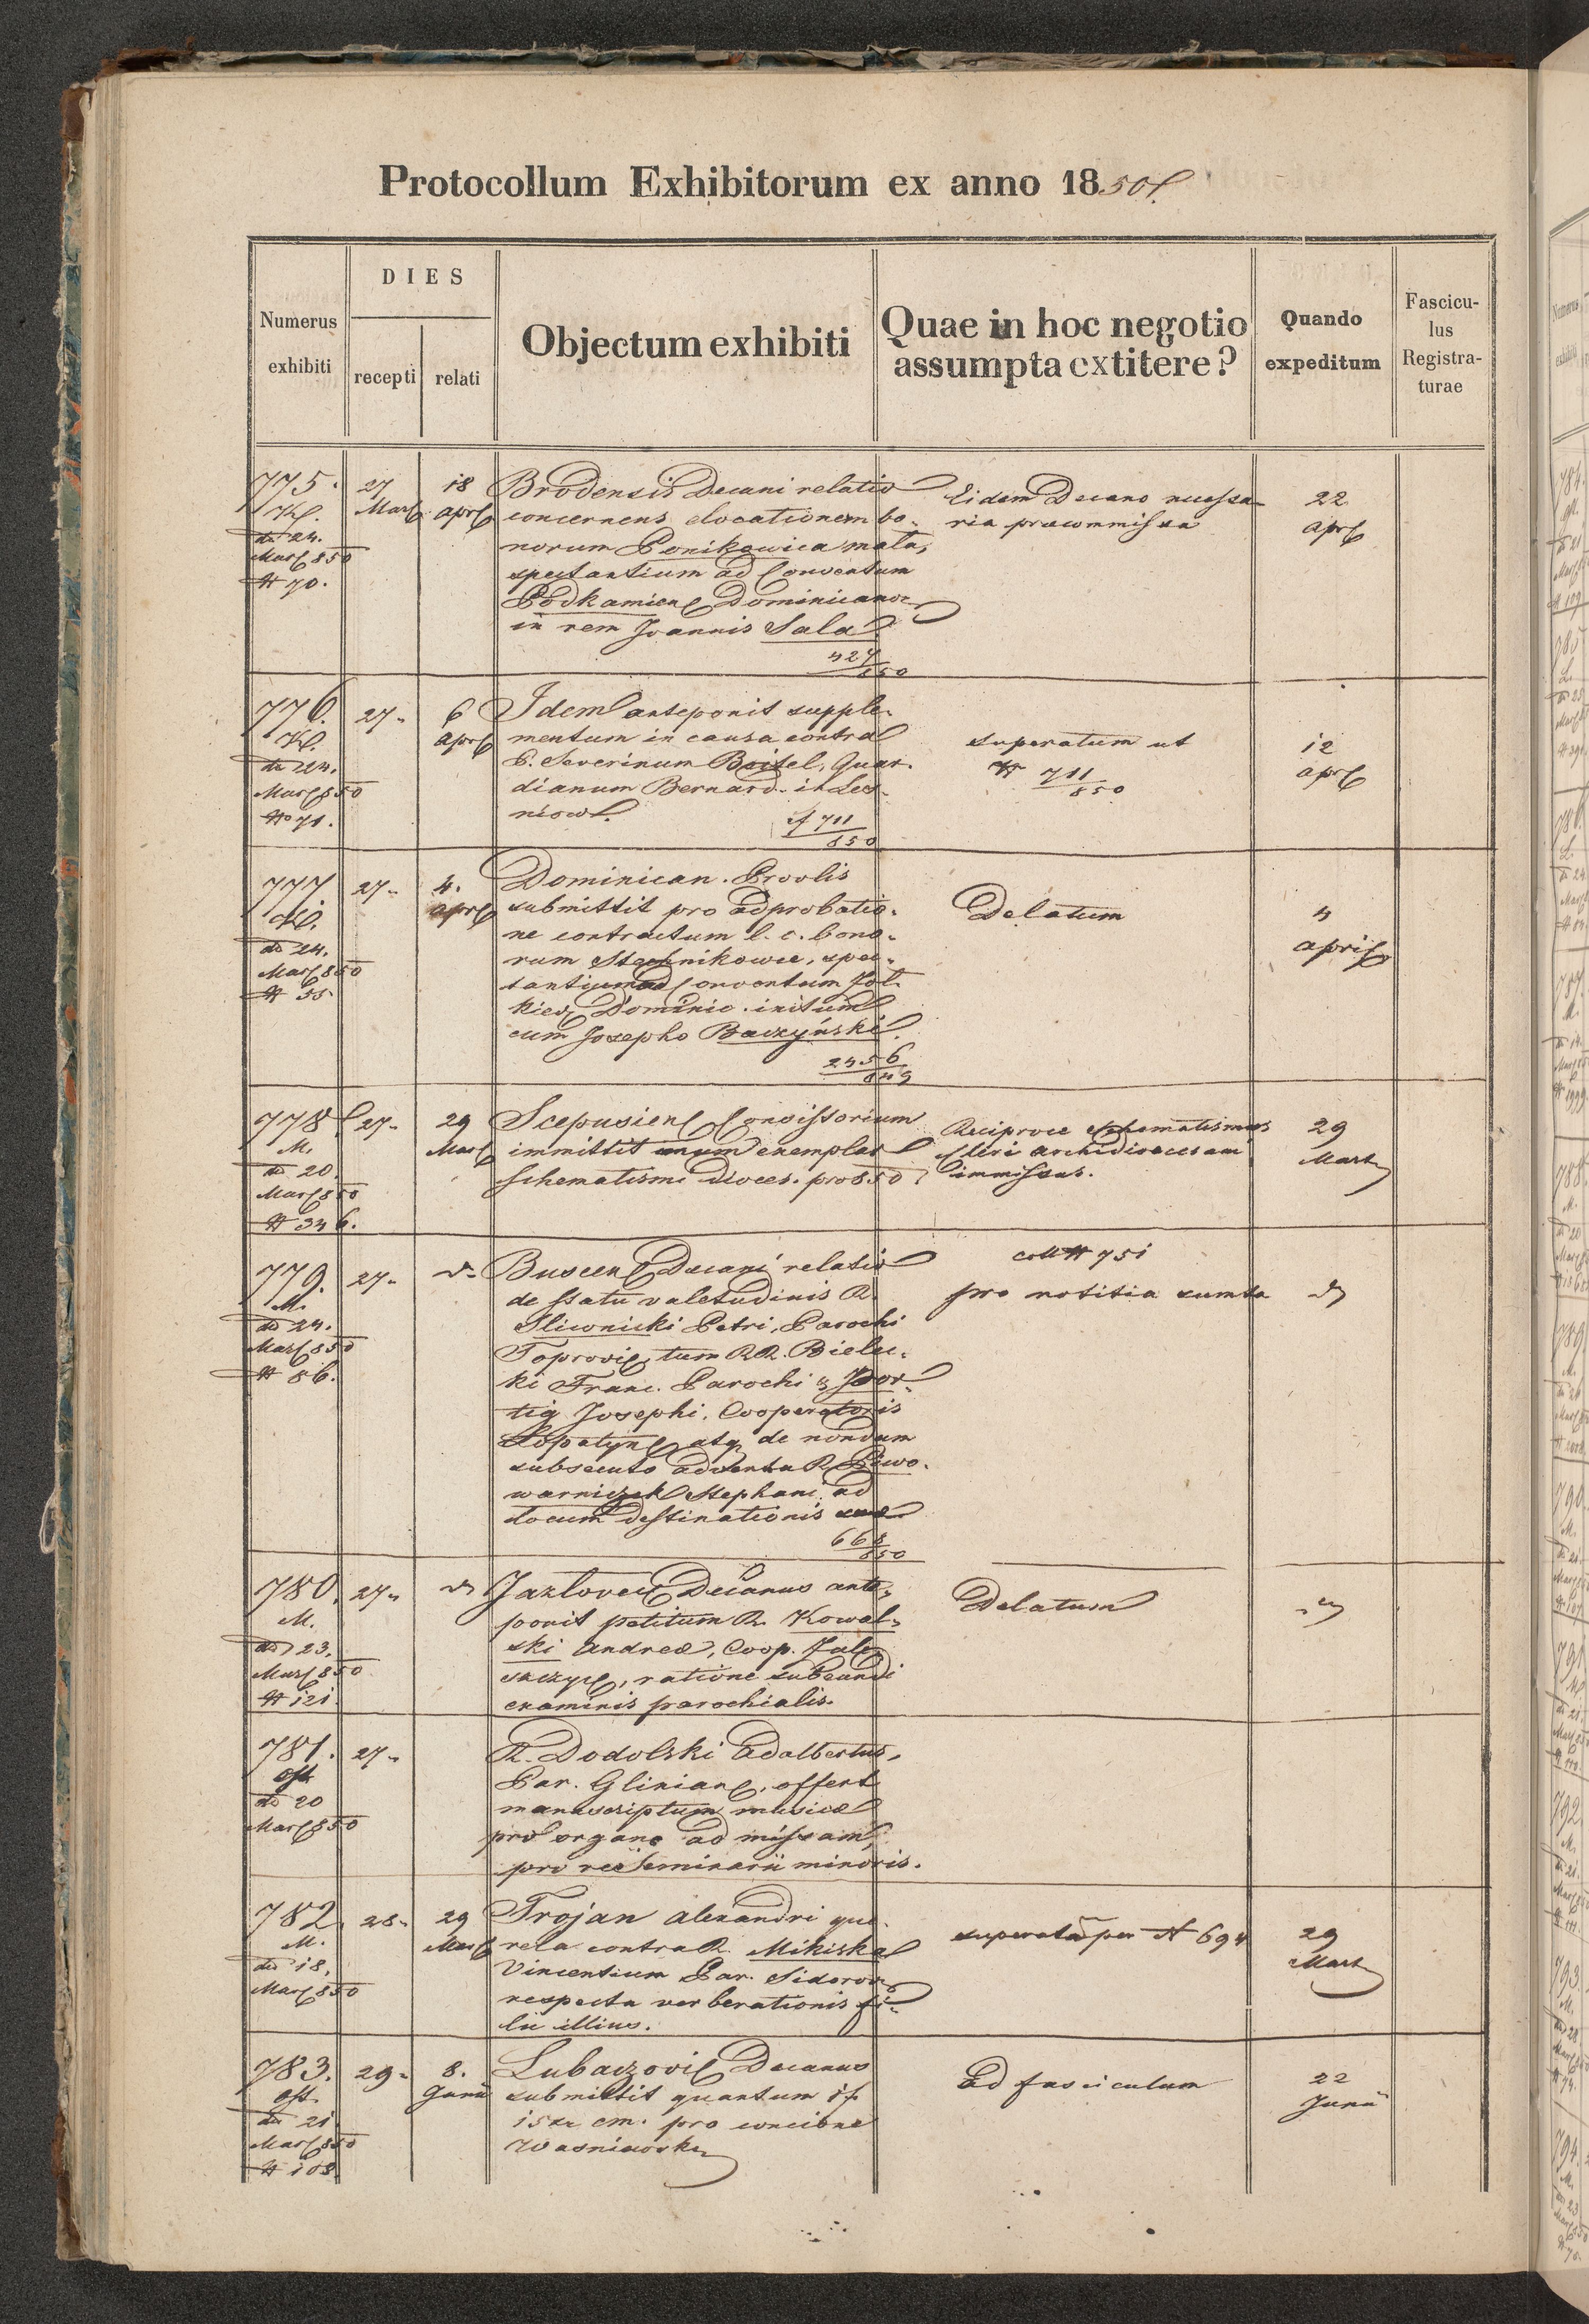 Protocollum Exhibitorum ex anno 1850
Numerus exhibiti
DIES
recepti
relati
Objectum exhibiti
Quae in hoc negotio assumpta extitere?
Quando expeditum
Fascicu-
lus
Registra-
turae
775.
dto 24.
Mar 850
N 70.
27
Mar
18
apr
Brodensis Decani relatio
concernens elocationem bo-
norum Ponikowica mała,
spectantium ad Conventum
Podkamien Dominicanor
in rem Joannis Sala
427
850
Eidem Decano necessa-
ria praecommissa
22
apr
776.
dto 24.
Mar 850
No 71.
27
6
apr
Idem anteponit supple-
mentum in causa contra
P. Severinum Boisel, Guar-
dianum Bernard. in Les-
niow.
N 711
850
superatum ut
N 711
850
12
apr
777
dto 24.
Mar 850
N 55
27
4.
apr
Dominican. Provlis
submittit pro adprobatio-
ne contractum l. c. bono-
rum spec-
tantium ad Conventum Zol-
kiew Dominic. initum
cum Josepho Baczyński.
2456
849
Delatum
4
april
778
M.
dto 20.
Mar 850
N 346.
27
29
Mar
Scepusien Consissorium
immittit unum exemplar
schematismi dioces. pro 850
Reciproce schematismus
cleri archidioecesani
immissus.
29
Mart
779.
M.
dto 24.
Mar 850
N 86.
27
Buscen Decani relatio
de statu valetudinis R.
Sliwnicki Petri, Parochi
Toprovic, tum RR. Bielec-
ki Franc. Parochi & Zdor-
tig Josephi, Cooperatoris
Lopatyn atq de nondum
subsecuto adventu R. Piwo-
warniczek Stephani ad
locum destinationis suae
668
850
coll N 751
pro notitia sumta
780.
M.
dto 23.
Mar 850
N 121.
27
Jazlovec Decanus ante-
ponit petitum R. Kowal-
ski Andreae, Coop. Zale-
szczyc, ratione subeundi
examinis parochialis.
Delatum
781.
dto 20
Mar 850
27
R. Dodolski Adalbertus,
Par. Glinian, offert
manuscriptum musicae
pro organo ad missam,
pro re Seminarii minoris.
782.
M.
dto 18.
Mar 850
28
29
Mar
Trojan Alexandri que-
rela contra R. Mikiska
Vincentium Par. Sidorov
respectu verberationis fi-
lii illius.
superatum per N 694
29
Mart
783.
dto 21
Mar 850
N 108
29
8.
Junii
Lubaczovic Decanus
submittit quantum 1 f.
15 xr cm. pro concione
Wasniowski
Ad fasciculum
22
Junii